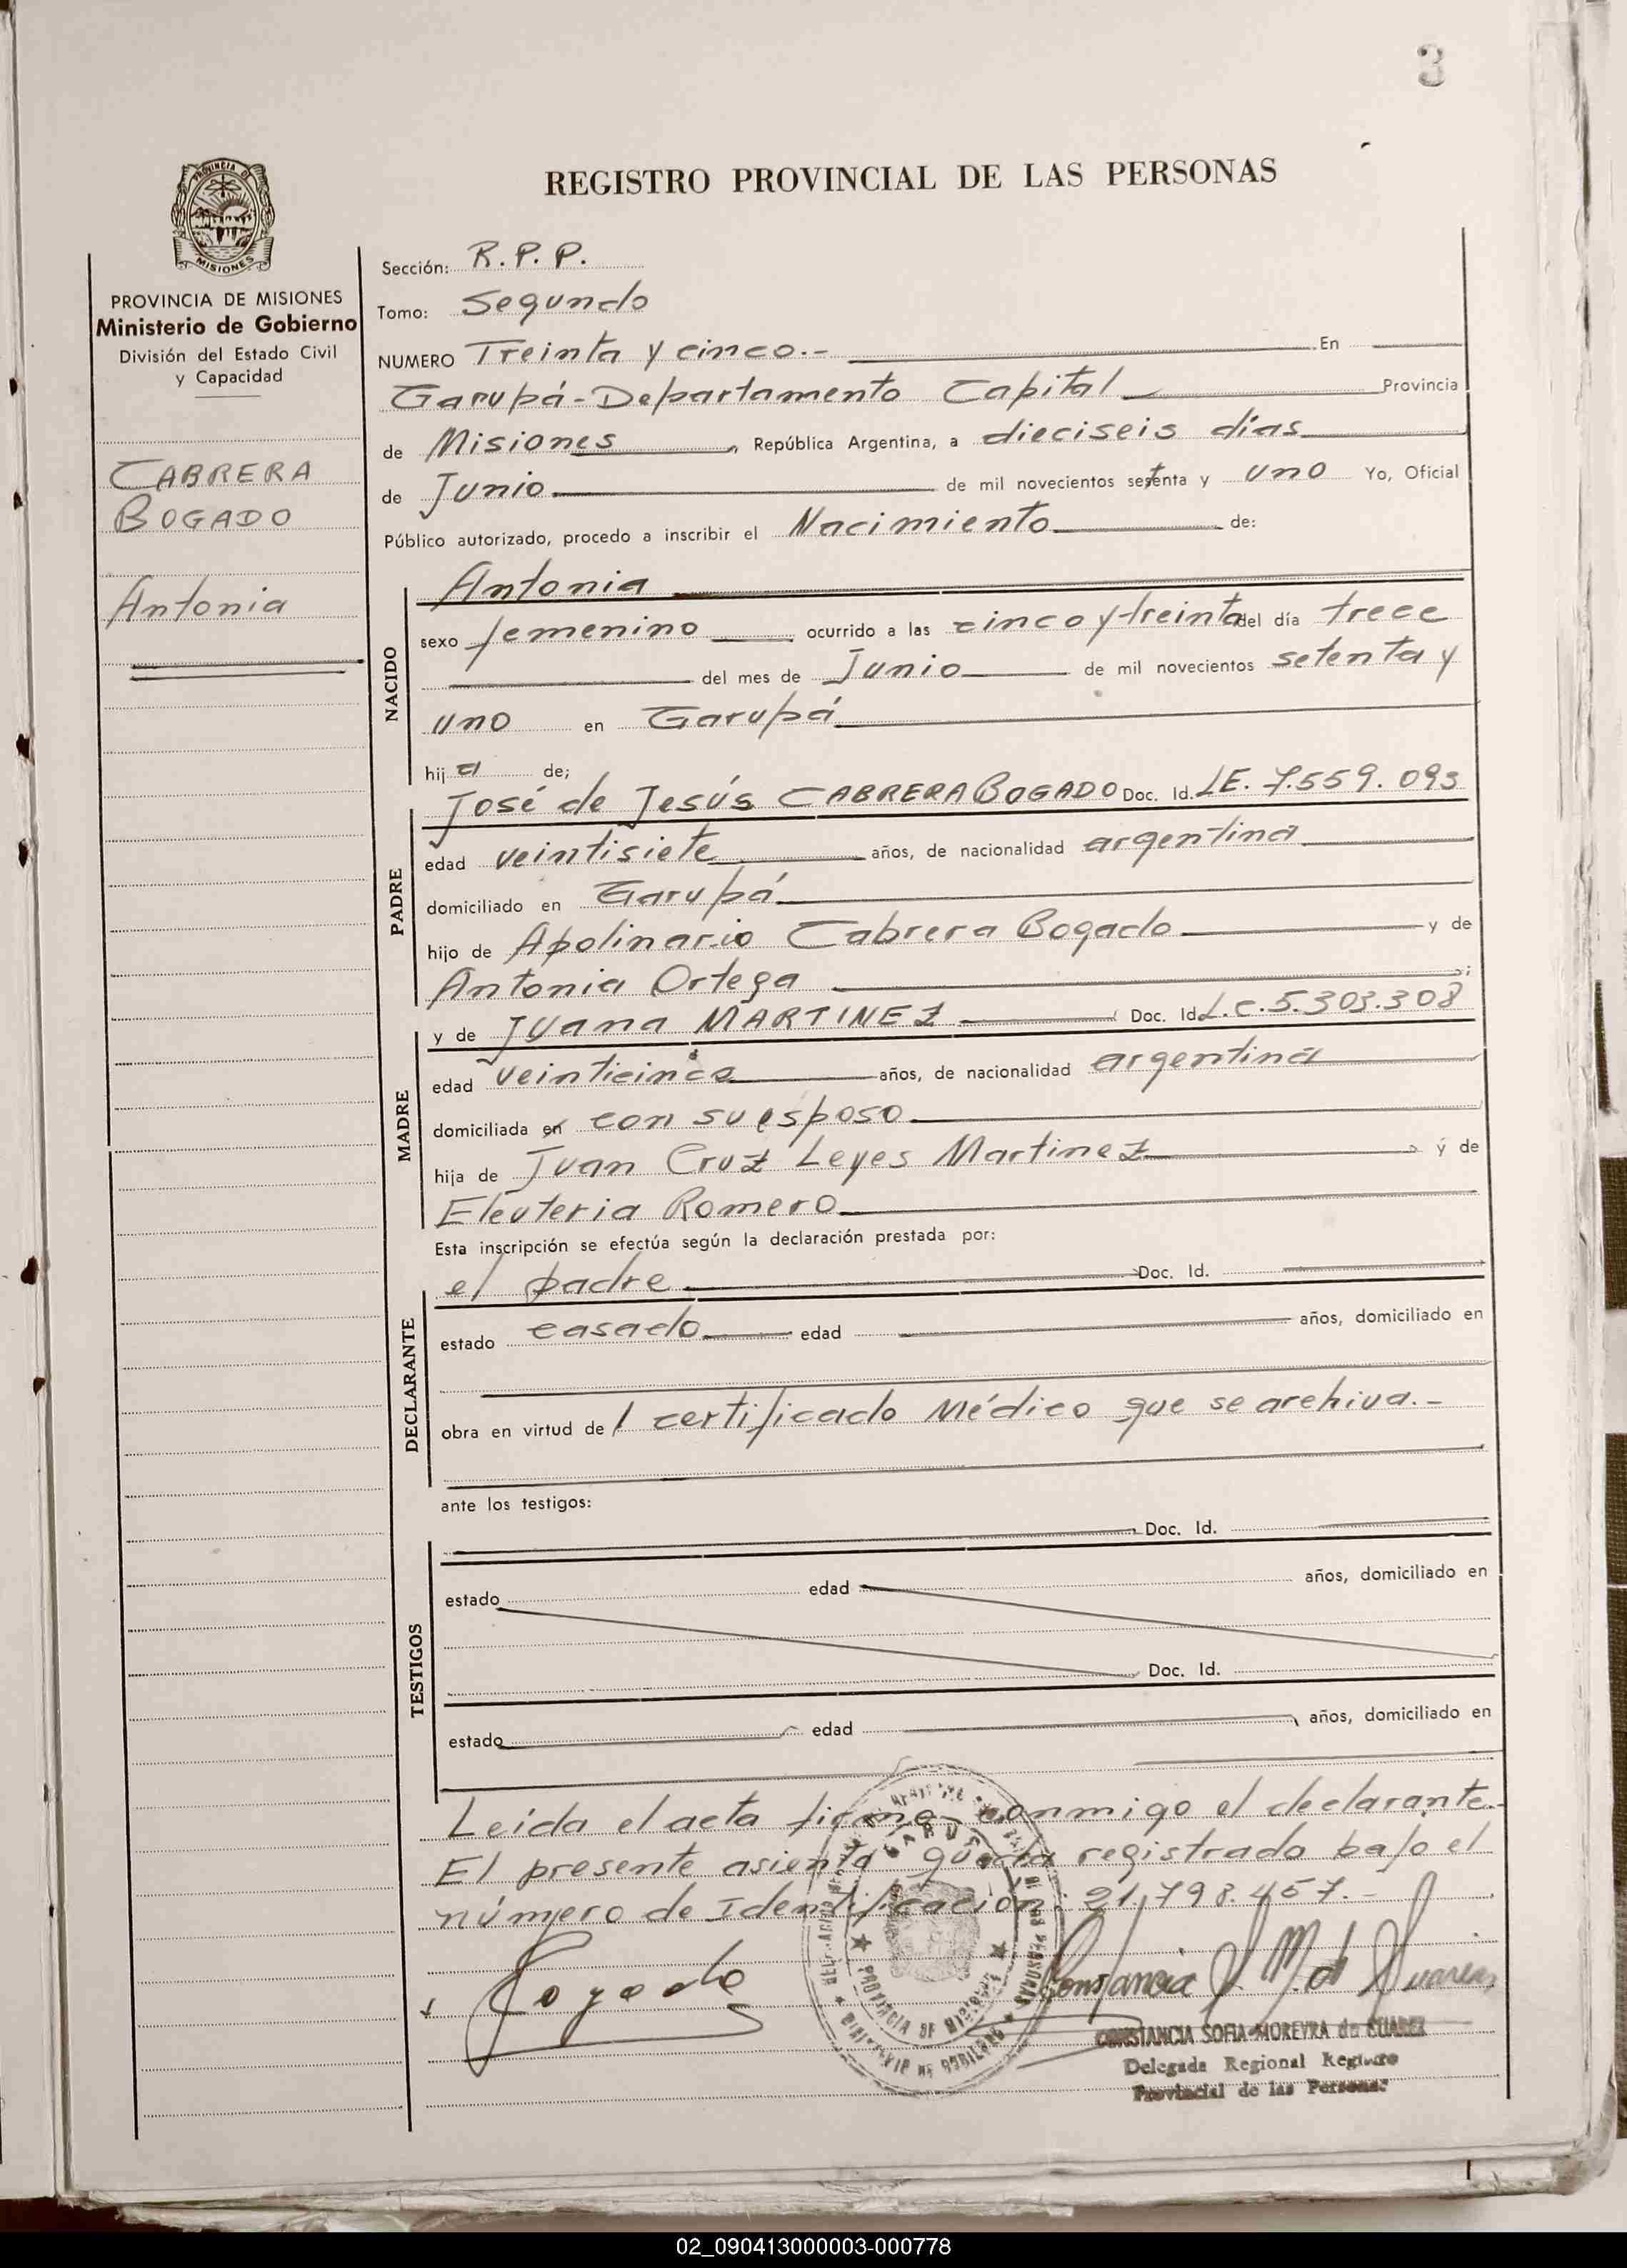 3
REGISTRO PROVINCIAL DE LAS PERSONAS
PROVINCIA DE
MISIONES
PROVINCIA DE MISIONES
Ministerio de Gobierno
División del Estado Civil
y Capacidad
CABRERA
BOGADO
Antonia
Sección: R.P.P.
Tomo: Segundo
NUMERO Treinta y cinco.- En
Garupá-Departamento Capital Provincia
de Misiones, República Argentina, a dieciseis días
de Junio de mil novecientos setenta y uno Yo, Oficial
Público autorizado, procedo a inscribir el Nacimiento de:
NACIDO
Antonia
sexo femenino ocurrido a las cinco y treinta del día trece
del mes de Junio de mil novecientos setenta y
uno en Garupá
hija de;
PADRE
José de Jesús CABRERA BOGADO Doc. Id. LE. 7.559.093
edad veintisiete años, de nacionalidad argentina
domiciliado en Garupá
hijo de Apolinario Cabrera Bogado y de
Antonia Ortega ;
MADRE
y de Juana MARTINEZ Doc. Id. L.C. 5.303.308
edad veinticinco años, de nacionalidad argentina
domiciliada en con su esposo
hija de Juan Cruz Leyes Martinez y de
Eleuteria Romero
Esta inscripción se efectúa según la declaración prestada por:
DECLARANTE
el padre Doc. Id.
estado casado edad años, domiciliado en
obra en virtud de 1 certificado Médico que se archiva.-
ante los testigos:
TESTIGOS
Doc. Id.
estado edad años, domiciliado en
Doc. Id.
estado edad años, domiciliado en
Leída el acta firma conmigo el declarante.
El presente asiento queda registrado bajo el
número de Identificación: 21.798.457.-
Bogado
Constancia S. M. de Suarez
PROVINCIA DE MISIONES
MINISTERIO DE GOBIERNO
CONSTANCIA SOFIA MOREYRA de SUAREZ
Delegada Regional Registro
Provincial de las Personas
02_090413000003-000778